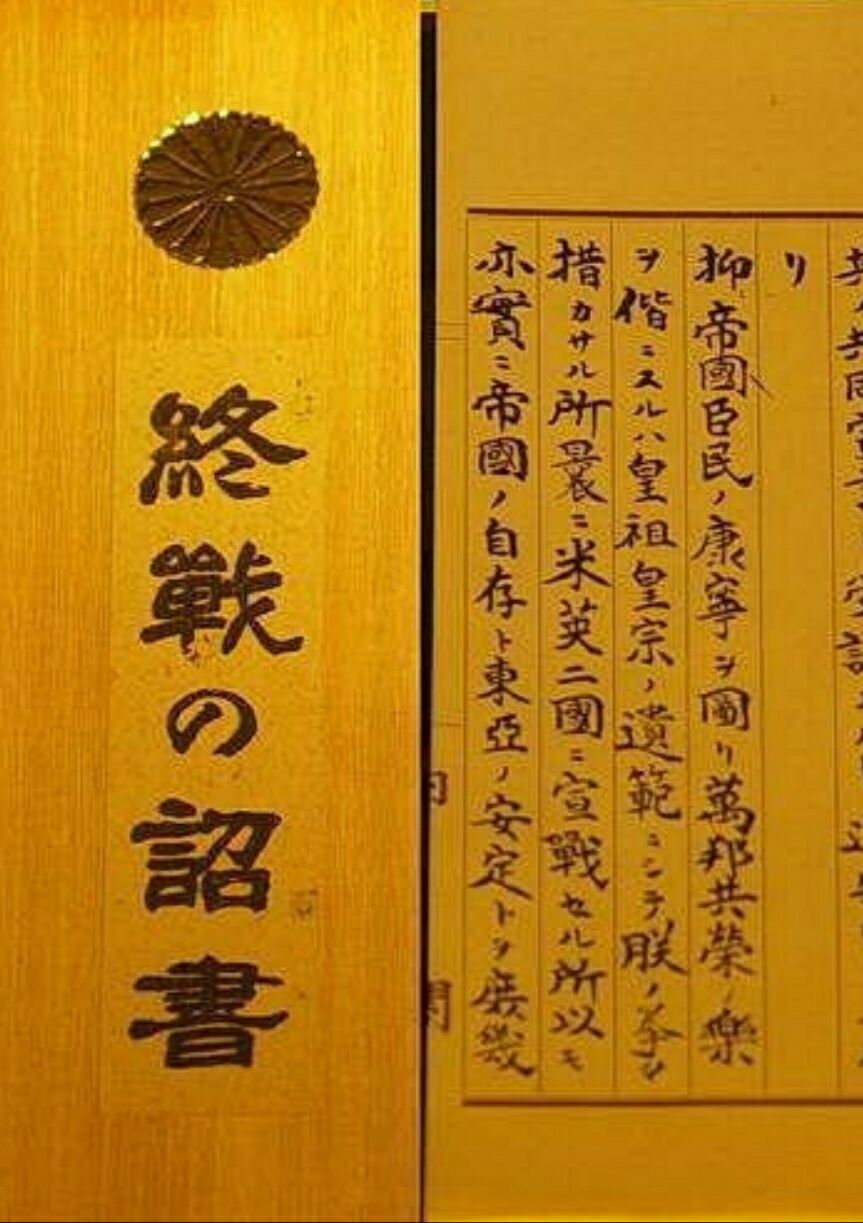 リ
抑帝國臣民ノ康寧ヲ圖リ萬邦共榮ノ樂
ヲ偕ニスルハ皇祖皇宗ノ遺範ニシテ朕ノ拳々
措カサル所曩ニ米英二國ニ宣戰セル所以モ
亦實ニ帝國ノ自存ト東亞ノ安定トヲ庶幾
終戰の詔書